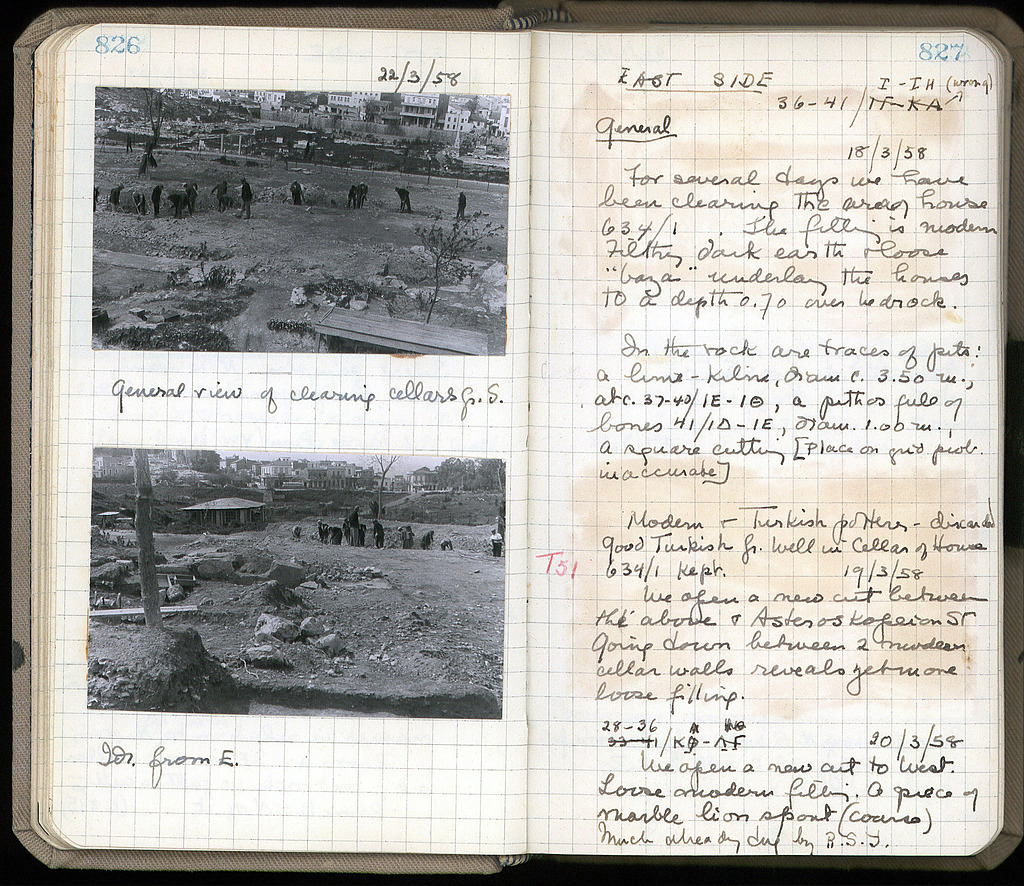 826
22/3/58
General view of clearing cellars fr. S.
Id. from E.
827
EAST SIDE
I-IH (wrong)
36-41/IF-KA
General
18/3/58
For several days we have
been clearing the area of house
634/1. The filling is modern
Filthy dark earth & loose
"baza" underlay the houses
to a depth 0.70 over bedrock.
In the rock are traces of pits:
a lime-kiln, diam c. 3.50 m.,
at c. 37-40/IE-IΘ, a pithos full of
bones 41/ID-IE, diam. 1.00 m.,
a square cutting [Place on grid prob.
inaccurate]
Modern & Turkish pottery - discarded
good Turkish fr. well in cellar of House
T51
634/1 kept.
19/3/58
We open a new cut between
the above & Asteroskopeion St
Going down between 2 modern
cellar walls reveals yet more
loose filling.
28-36
33-41/KΘ-ΛF
20/3/58
We open a new cut to West.
Loose modern filling. A piece of
marble lion spout (coarse)
Much already dug by R.S.Y.